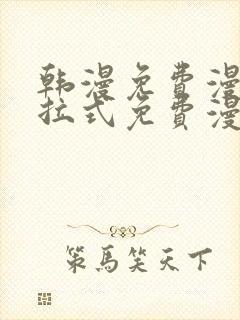 韩漫免费漫
拉式免费漫
策馬笑天下